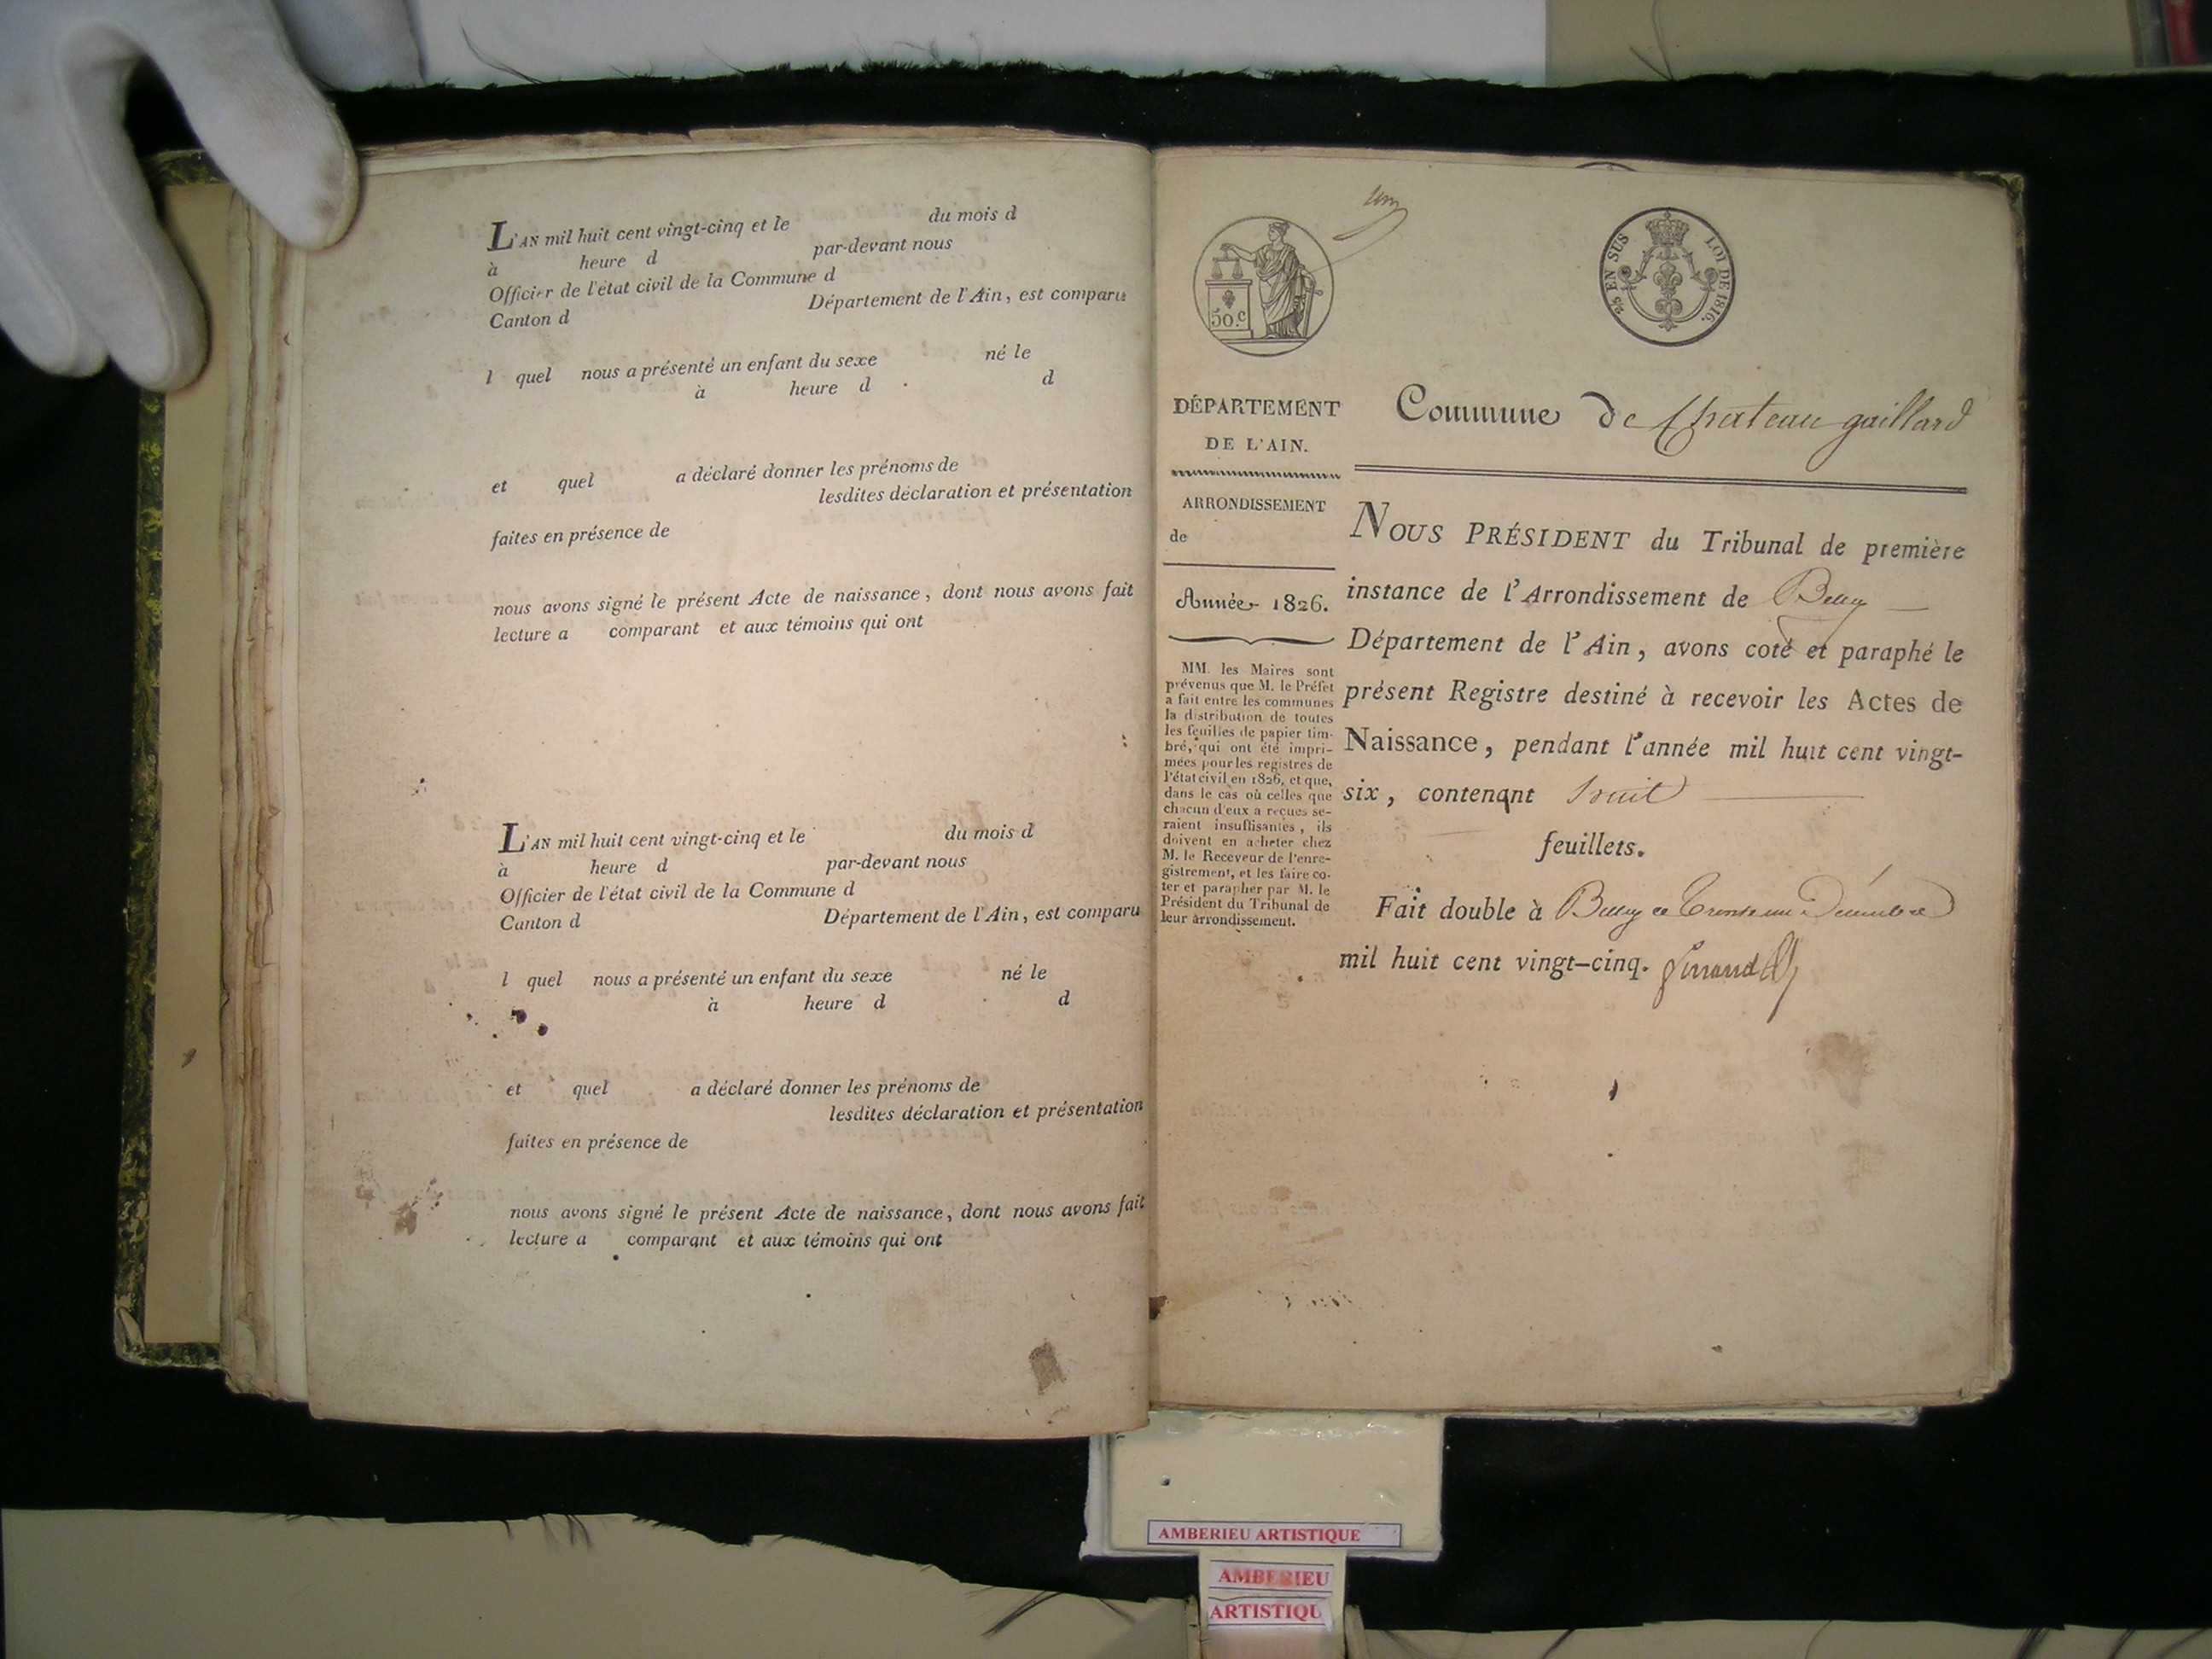 L'AN mil huit cent vingt-cinq et le du mois d
à heure d par-devant nous
Officier de l'état civil de la Commune d
Canton d Département de l'Ain, est comparu
l quel nous a présenté un enfant du sexe né le
à heure d d
et quel a déclaré donner les prénoms de
lesdites déclaration et présentation
faites en présence de
nous avons signé le présent Acte de naissance, dont nous avons fait
lecture a comparant et aux témoins qui ont
L'AN mil huit cent vingt-cinq et le du mois d
à heure d par-devant nous
Officier de l'état civil de la Commune d
Canton d Département de l'Ain, est comparu
l quel nous a présenté un enfant du sexe né le
à heure d d
et quel a déclaré donner les prénoms de
lesdites déclaration et présentation
faites en présence de
nous avons signé le présent Acte de naissance, dont nous avons fait
lecture a comparant et aux témoins qui ont
50.c
EN SUS LOI DE 1816.
DÉPARTEMENT
DE L'AIN.
ARRONDISSEMENT
de
Année 1826.
MM. les Maires sont
prévenus que M. le Préfet
a fait entre les communes
la distribution de toutes
les feuilles de papier tim-
bré, qui ont été impri-
mées pour les registres de
l'état civil en 1826, et que,
dans le cas où celles que
chacun d'eux a reçues se-
raient insuffisantes, ils
doivent en acheter chez
M. le Receveur de l'enre-
gistrement, et les faire co-
ter et parapher par M. le
Président du Tribunal de
leur arrondissement.
Commune de Chateau gaillard
NOUS PRÉSIDENT du Tribunal de première
instance de l'Arrondissement de Belley
Département de l'Ain, avons coté et paraphé le
présent Registre destiné à recevoir les Actes de
Naissance, pendant l'année mil huit cent vingt-
six, contenant huit
feuillets.
Fait double à Belley ce trente un Décembre
mil huit cent vingt-cinq.
AMBERIEU ARTISTIQUE
AMBERIEU
ARTISTIQU